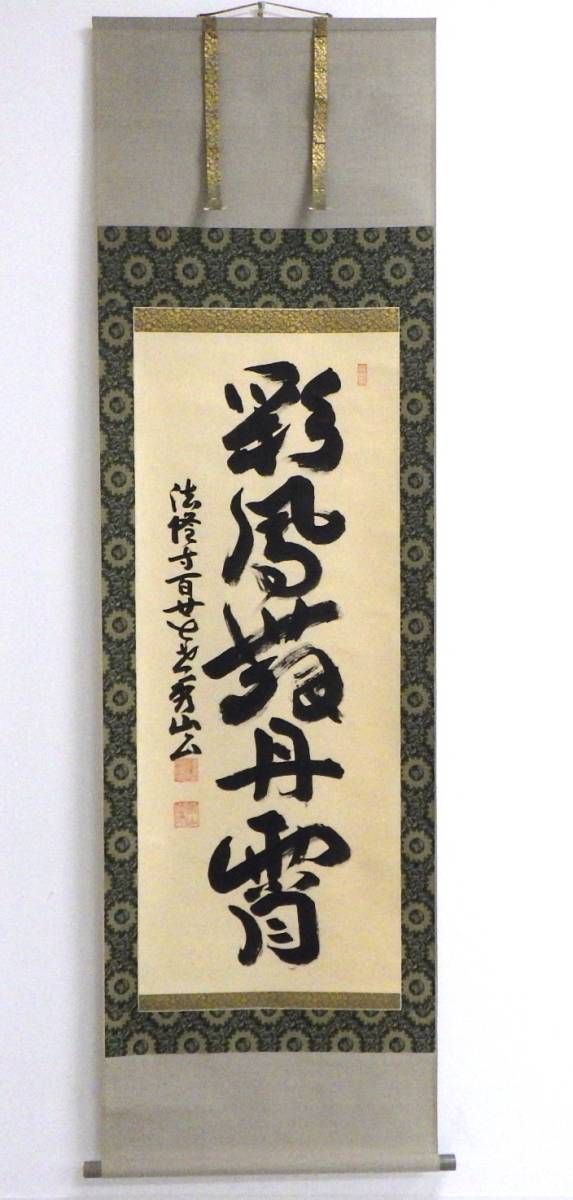 彩鳳舞丹霄
法隆寺百廿七世秀山書